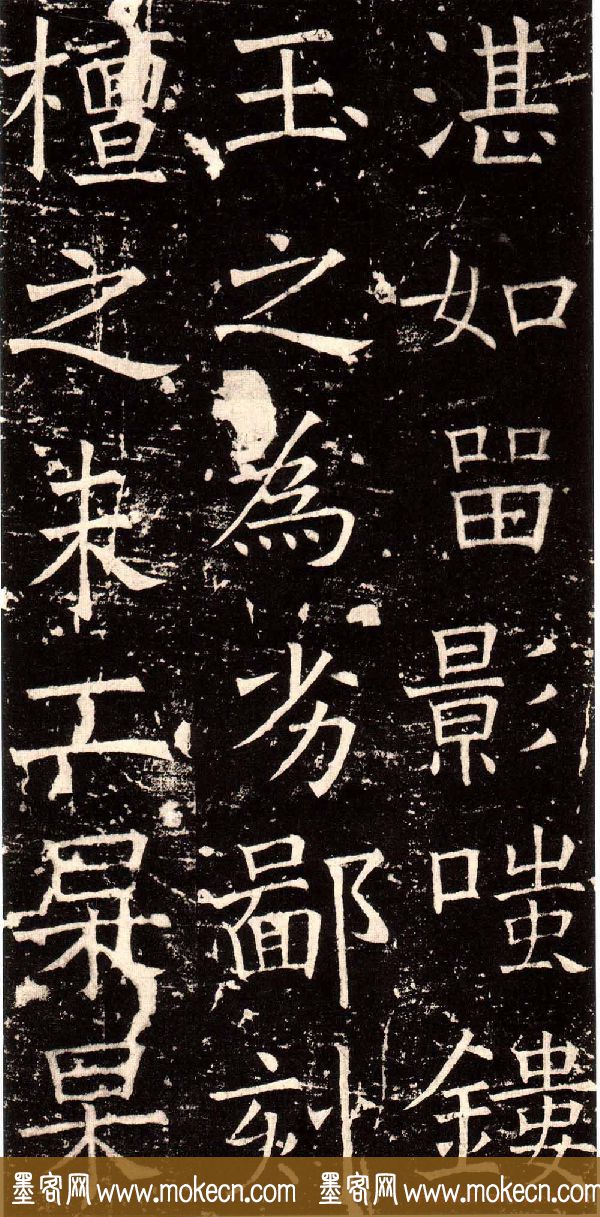 湛如留影嗤鏤
玉之為劣鄙刻
檀之未工杲杲
墨客网 www.mokecn.com 墨客网 www.mokecn.com